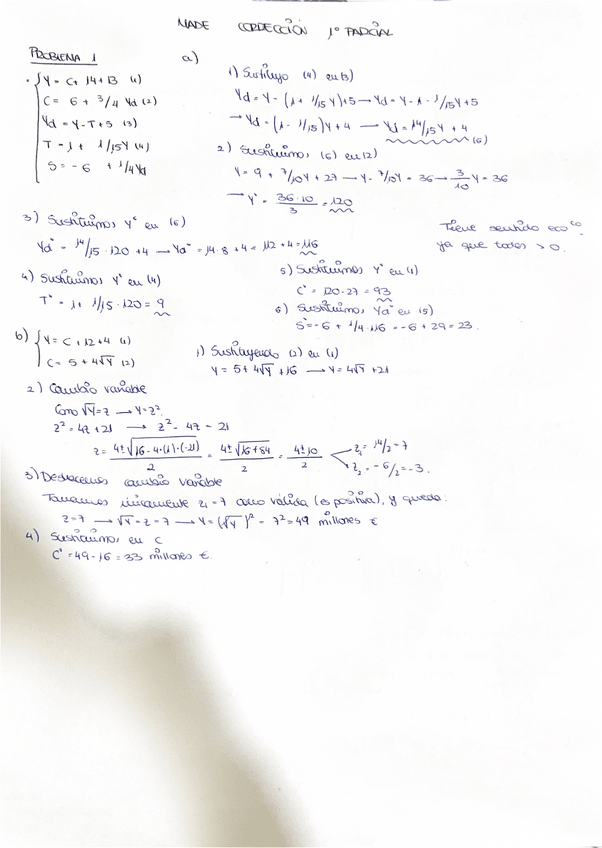 MADE CORRECCIÓN 1º PARCIAL
PROBLEMA 1
a)
Y = C + 14 + 13 (1)
C = 6 + 3/4 Yd (2)
Yd = Y - T + 5 (3)
T = 1 + 1/15Y (4)
S = -6 + 1/4Yd
1) Sustituyo (4) en (3)
Yd = Y - (1 + 1/15 Y) + 5 → Yd = Y - 1 - 1/15Y + 5
→ Yd = (1 - 1/15)Y + 4 → Yd = 14/15 Y + 4 (6)
2) Sustituimos (6) en (2)
Y = 9 + 7/10Y + 27 → Y - 7/10Y = 36 → 3/10 Y = 36
→ Y* = 36·10/3 = 120
3) Sustituimos Y* en (6)
Yd* = 14/15 · 120 + 4 → Yd* = 14·8 + 4 = 112 + 4 = 116
Tiene sentido ecoco
ya que todos > 0.
4) Sustituimos Y* en (4)
T* = 1 + 1/15 · 120 = 9
5) Sustituimos Y* en (1)
C* = 120 - 27 = 93
6) Sustituimos Yd* en (5)
S* = -6 + 1/4 · 116 = -6 + 29 = 23.
b)
Y = C + 12 + 4 (1)
C = 5 + 4√Y (2)
1) Sustituyendo (2) en (1)
Y = 5 + 4√Y + 16 → Y = 4√Y + 21
2) Cambio variable
Como √Y = z → Y = z².
z² = 4z + 21 → z² - 4z - 21
z = 4±√16 - 4·(1)·(-21)/2 = 4±√16 + 84/2 = 4±10/2
z₁ = 14/2 = 7
z₂ = -6/2 = -3.
3) Deshacemos cambio variable
Tomamos únicamente z₁ = 7 como válida (es positiva), y queda:
z = 7 → √Y = z = 7 → Y = (√Y)² = 7² = 49 millones €
4) Sustituimos en C
C* = 49 - 16 = 33 millones €.